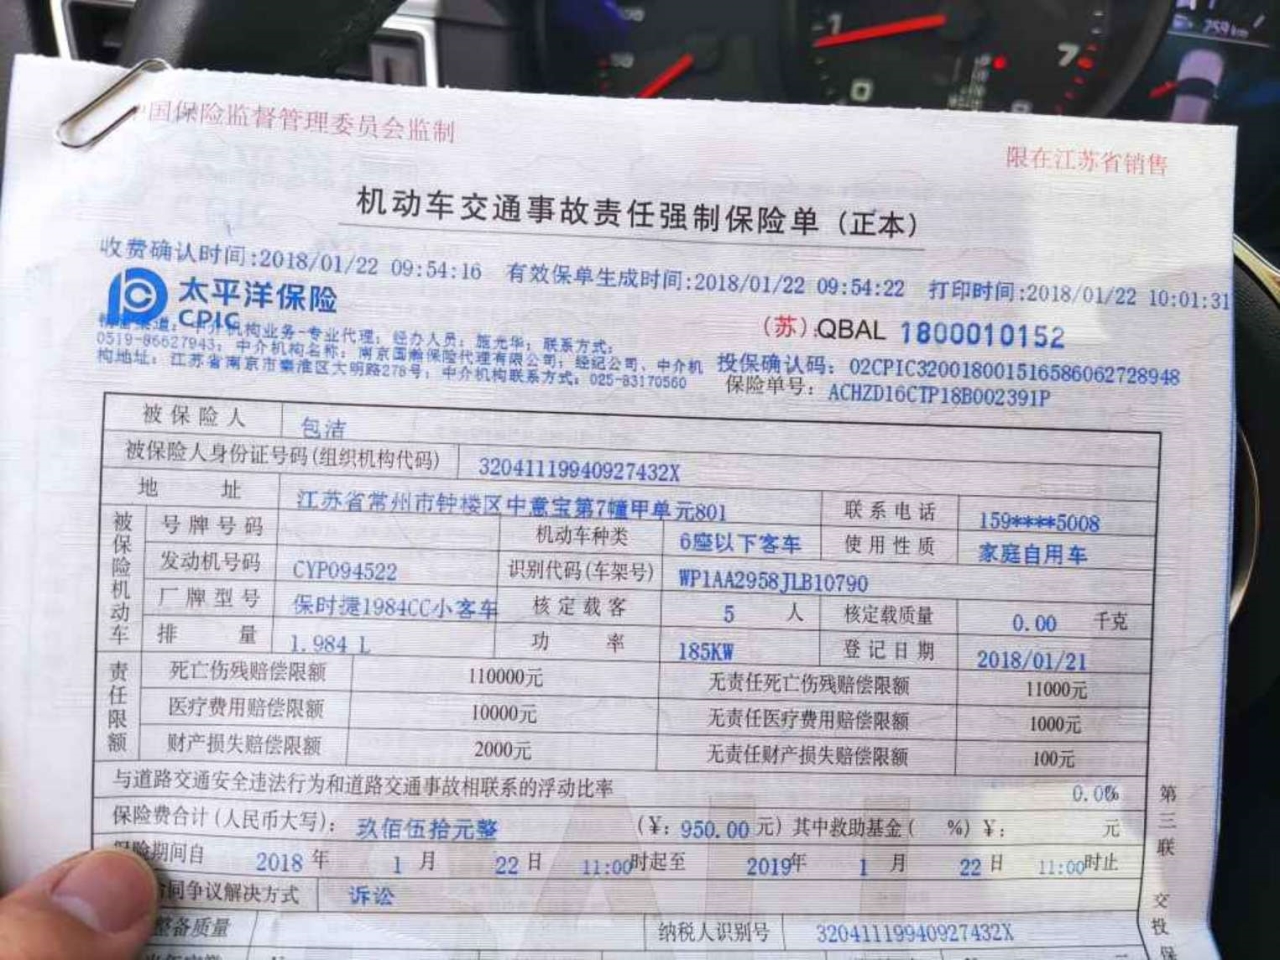 国保险监督管理委员会监制
限在江苏省销售
机动车交通事故责任强制保险单(正本)
收费确认时间:2018/01/22 09:54:16 有效保单生成时间:2018/01/22 09:54:22 打印时间:2018/01/22 10:01:31
太平洋保险
CPIC
(苏):QBAL 1800010152
中介机构业务-专业代理; 经办人员: 施光华; 联系方式:
0519-86627943; 中介机构名称: 南京国瀚保险代理有限公司; 经纪公司、中介机
构地址: 江苏省南京市秦淮区大明路278号; 中介机构联系方式: 025-83170560
投保确认码: 02CPIC320018001516586062728948
保险单号: ACHZD16CTP18B002391P
被保险人 包洁
被保险人身份证号码(组织机构代码) 32041119940927432X
地址 江苏省常州市钟楼区中意宝第7幢甲单元801 联系电话 159****5008
被保险机动车
号牌号码 机动车种类 6座以下客车 使用性质 家庭自用车
发动机号码 CYP094522 识别代码(车架号) WP1AA2958JLB10790
厂牌型号 保时捷1984CC小客车 核定载客 5 人 核定载质量 0.00 千克
排量 1.984 L 功率 185KW 登记日期 2018/01/21
责任限额
死亡伤残赔偿限额 110000元 无责任死亡伤残赔偿限额 11000元
医疗费用赔偿限额 10000元 无责任医疗费用赔偿限额 1000元
财产损失赔偿限额 2000元 无责任财产损失赔偿限额 100元
与道路交通安全违法行为和道路交通事故相联系的浮动比率 0.0%
保险费合计(人民币大写): 玖佰伍拾元整 (¥: 950.00 元) 其中救助基金( %) ¥: 元
保险期间自 2018 年 1 月 22 日 11:00时起至 2019年 1 月 22 日 11:00时止
合同争议解决方式 诉讼
整备质量 纳税人识别号 32041119940927432X
第三联 交投保